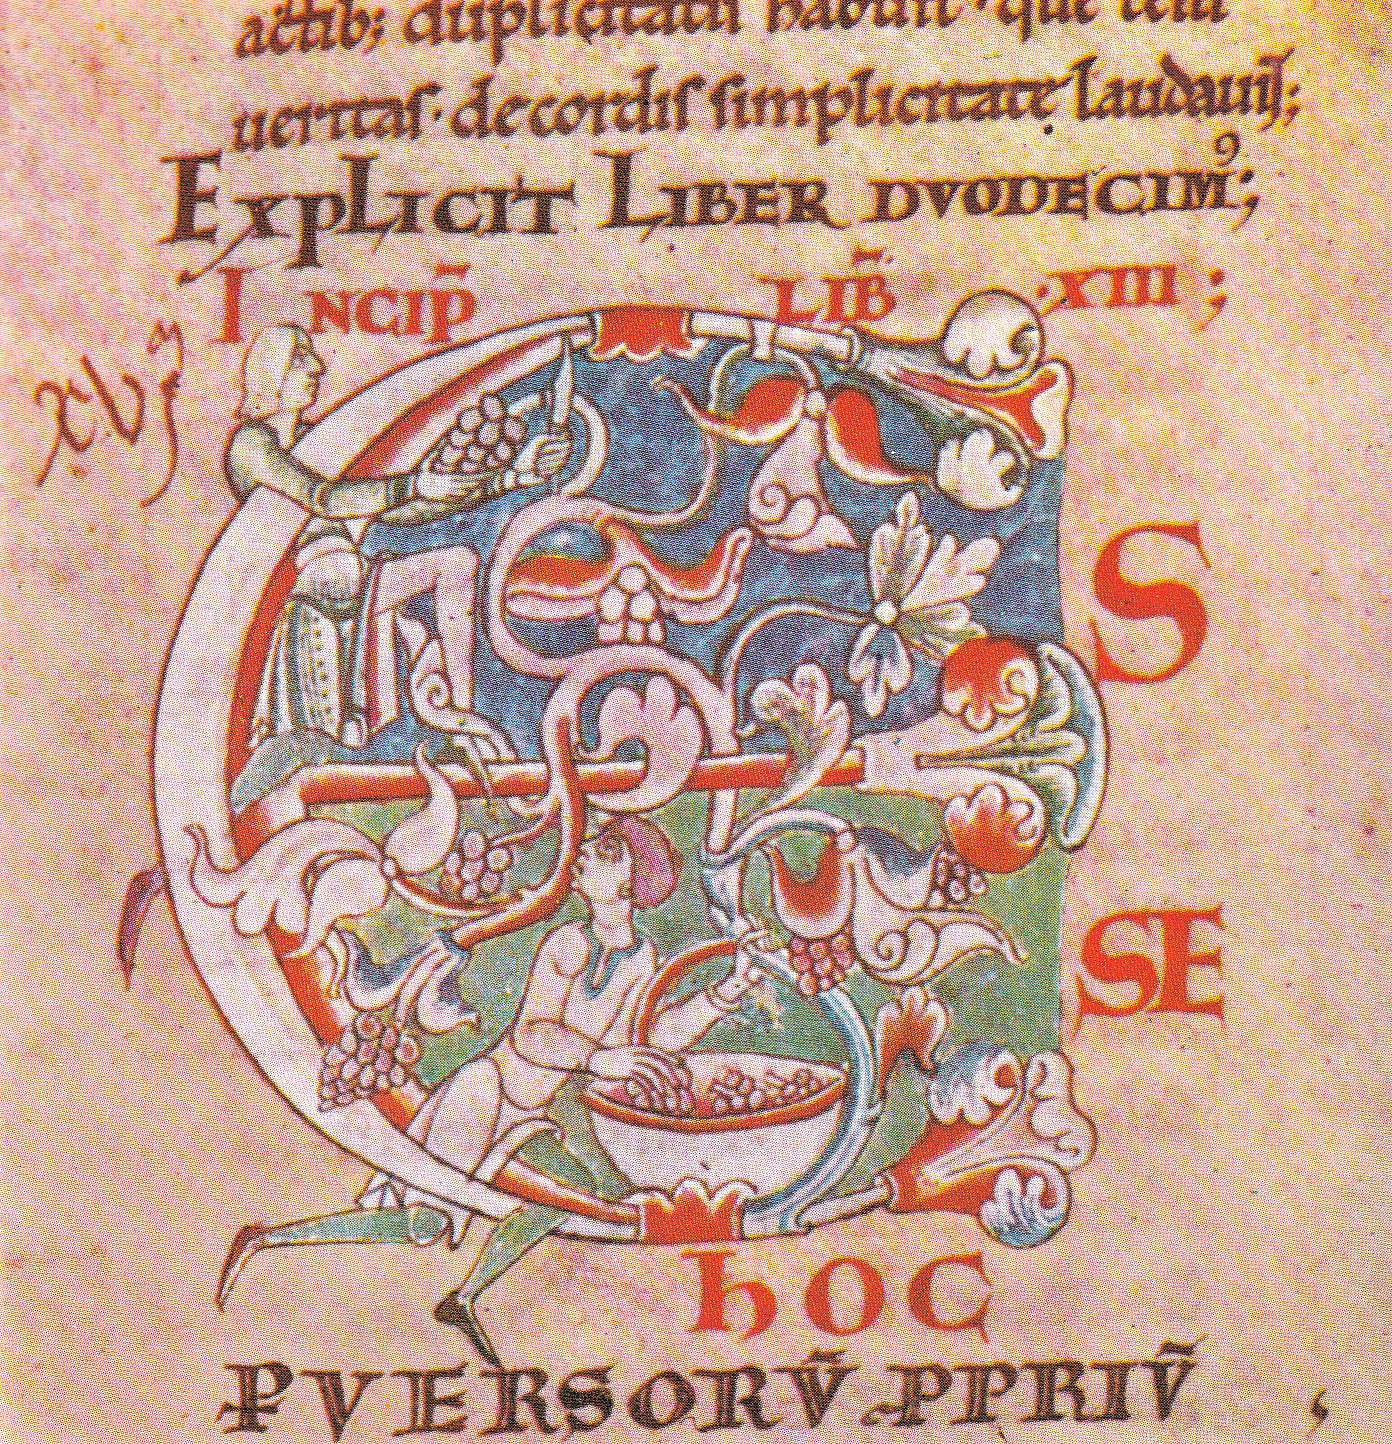 actib; duplicitatem habuit · que tem
ueritas · de cordis simplicitate laudauit;
EXPLICIT LIBER DVODECIM9;
INCIP̄ LIB̄ · XIII ;
ES
SE
hOC
PVERSORV̄ PPRIV̄ ,